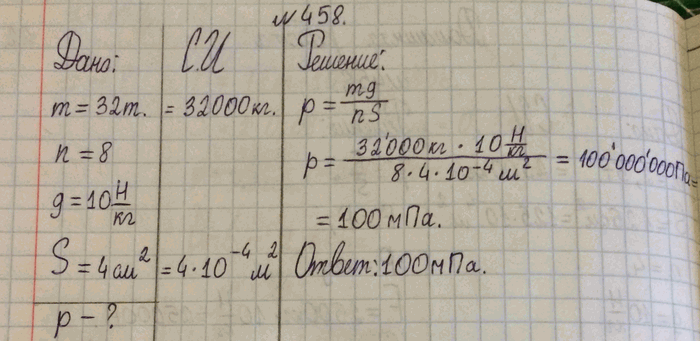 №458.
Дано:
m = 32т.
n = 8
g = 10 Н/кг
S = 4 см²
p - ?
СИ
= 32000 кг.
= 4 · 10⁻⁴ м²
Решение:
p = mg/nS
p = 32'000 кг · 10 Н/кг / 8 · 4 · 10⁻⁴ м² = 100'000'000 Па =
= 100 мПа.
Ответ: 100 мПа.